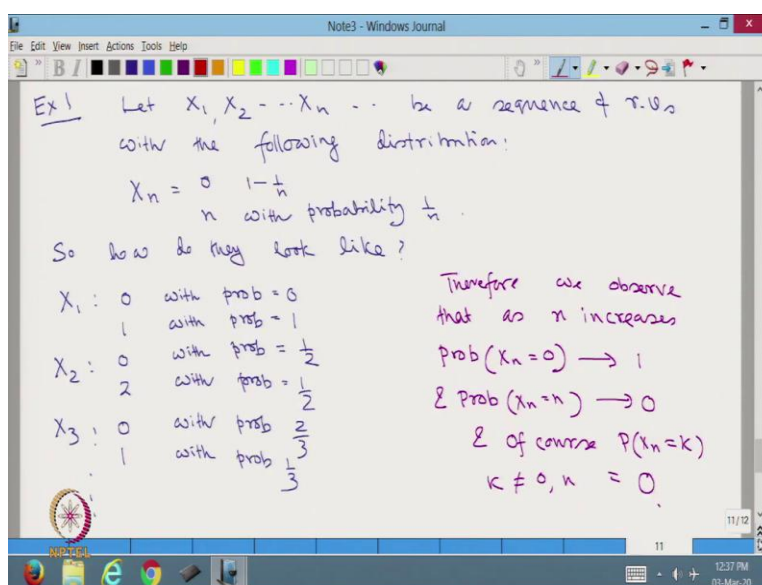 Note3 - Windows Journal
File Edit View Insert Actions Tools Help
B I
Ex 1 Let X₁, X₂ - - - Xₙ - - be a sequence of r.vs
with the following distribution:
Xₙ = 0 1 - 1/n
n with probability 1/n.
So how do they look like?
X₁ : 0 with prob = 0
1 with prob = 1
X₂ : 0 with prob = 1/2
2 with prob = 1/2
X₃ : 0 with prob 2/3
1 with prob 1/3
:
Therefore we observe
that as n increases
prob(Xₙ=0) → 1
& Prob(Xₙ=n) → 0
& of course P(Xₙ=K)
K ≠ 0, n = 0.
NPTEL
11/12
11
12:37 PM
03-Mar-20